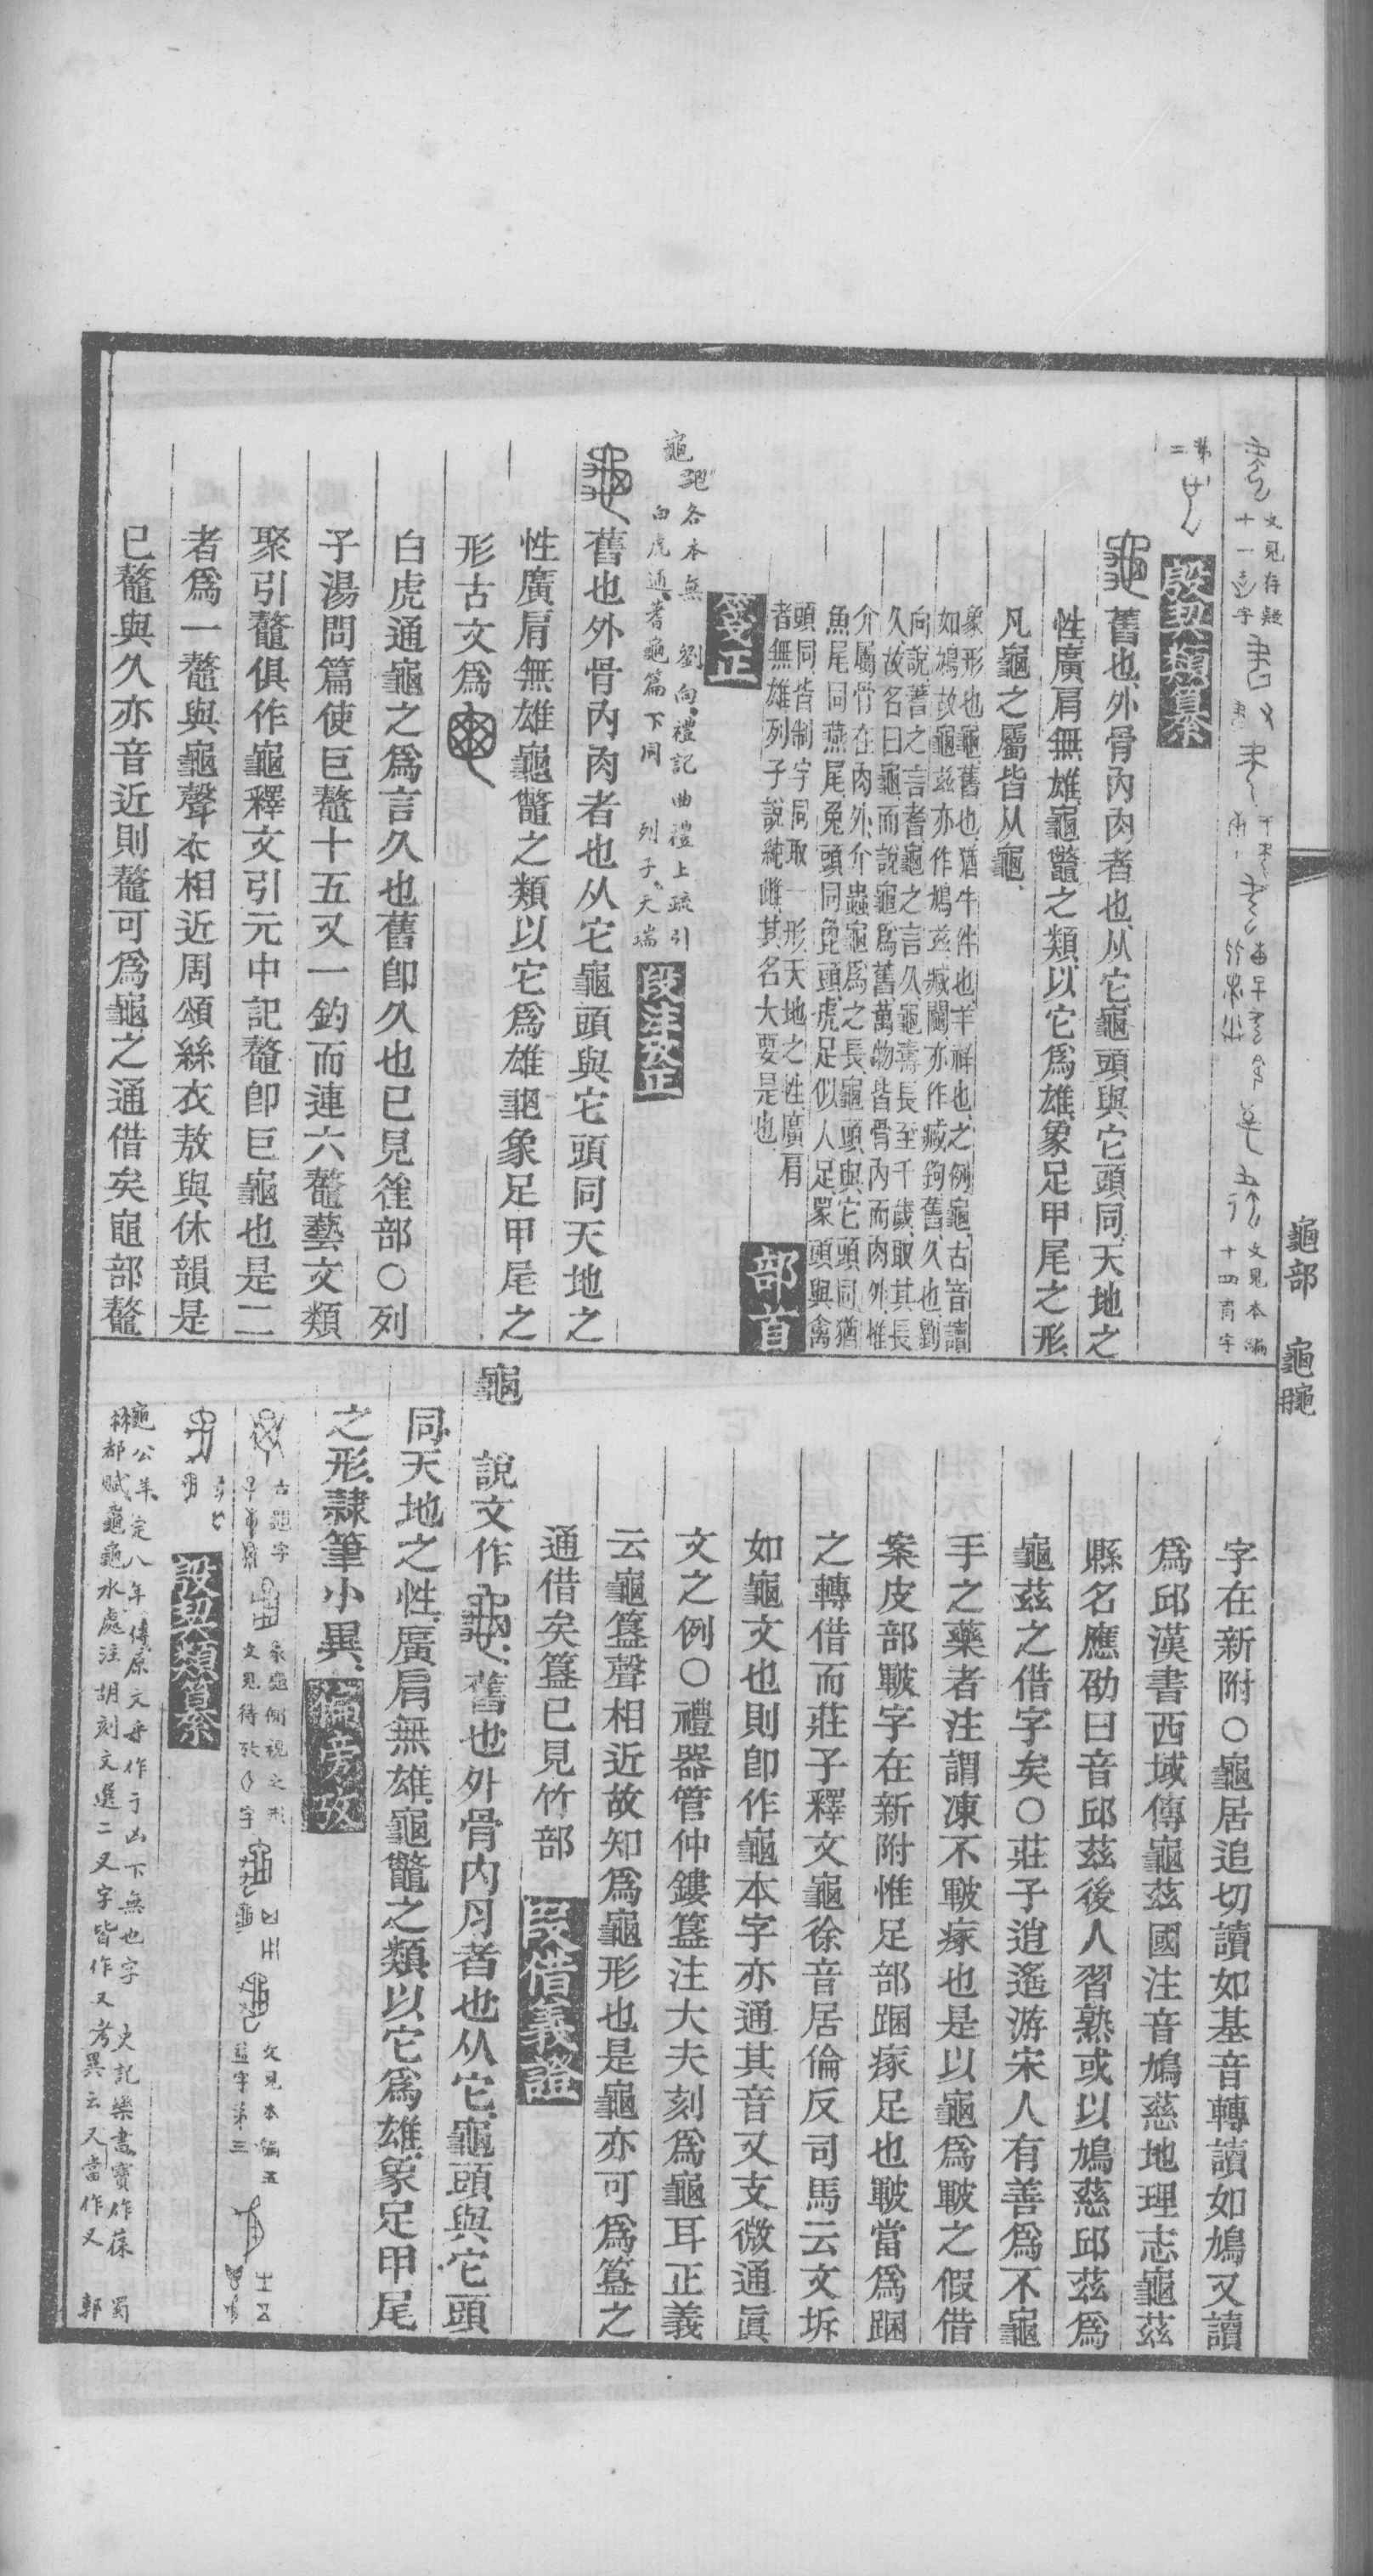 龜部　龜
文見存疑
十一字
文見本編
十四字
第二
殷契類纂
舊也外骨內肉者也从它龜頭與它頭同天地之
性廣肩無雄龜鼈之類以它爲雄象足甲尾之形
凡龜之屬皆从龜
象形也龜舊也猶牛件也羊祥也之例龜古音讀
如鳩故龜茲亦作鳩茲臧闞亦作臧鉤舊久也劉
向說蓍之言耆龜之言久龜壽長至千歲取其長
久故名曰龜而說龜爲舊萬物皆骨內而肉外惟
介屬骨在肉外介蟲龜爲之長龜頭與它頭同猶
魚尾同燕尾兔頭同㲋頭虎足似人足㲋頭與禽
頭同皆制字同取一形天地之性廣肩
者無雄列子說純雌其名大要是也
部首
箋正
龜 各本無　劉向禮記曲禮上疏引
白虎通蓍龜篇下同　列子天瑞
段注攷正
舊也外骨內肉者也从它龜頭與它頭同天地之
性廣肩無雄龜鼈之類以它爲雄龜象足甲尾之
形古文爲
白虎通龜之爲言久也舊卽久也已見雈部〇列
子湯問篇使巨鼇十五又一釣而連六鼇藝文類
聚引鼇俱作龜釋文引元中記鼇卽巨龜也是二
者爲一鼇與龜聲本相近周頌絲衣敖與休韻是
已鼇與久亦音近則鼇可爲龜之通借矣黽部鼇
字在新附〇龜居追切讀如基音轉讀如鳩又讀
爲邱漢書西域傳龜茲國注音鳩慈地理志龜茲
縣名應劭曰音邱茲後人習熟或以鳩慈邱茲爲
龜茲之借字矣〇莊子逍遙游宋人有善爲不龜
手之藥者注謂凍不皸瘃也是以龜爲皸之假借
案皮部皸字在新附惟足部踞瘃足也皸當爲踞
之轉借而莊子釋文龜徐音居倫反司馬云文坼
如龜文也則卽作龜本字亦通其音又支微通眞
文之例〇禮器管仲鏤簋注大夫刻爲龜耳正義
云龜簋聲相近故知爲龜形也是龜亦可爲簋之
通借矣簋已見竹部
叚借義證
龜　說文作　舊也外骨內月者也从它龜頭與它頭
同天地之性廣肩無雄龜鼈之類以它爲雄象足甲尾
之形隸筆小異
偏旁攷
古龜字
象龜側視之形
文見待攷　字
文見本編五
字第三
殷契類纂
龜公羊定八年傳原文每作于凶下無也字　史記樂書寶作葆　蜀
都賦龜龜水處注胡刻文選二又字皆作又考異云又當作叉　郭